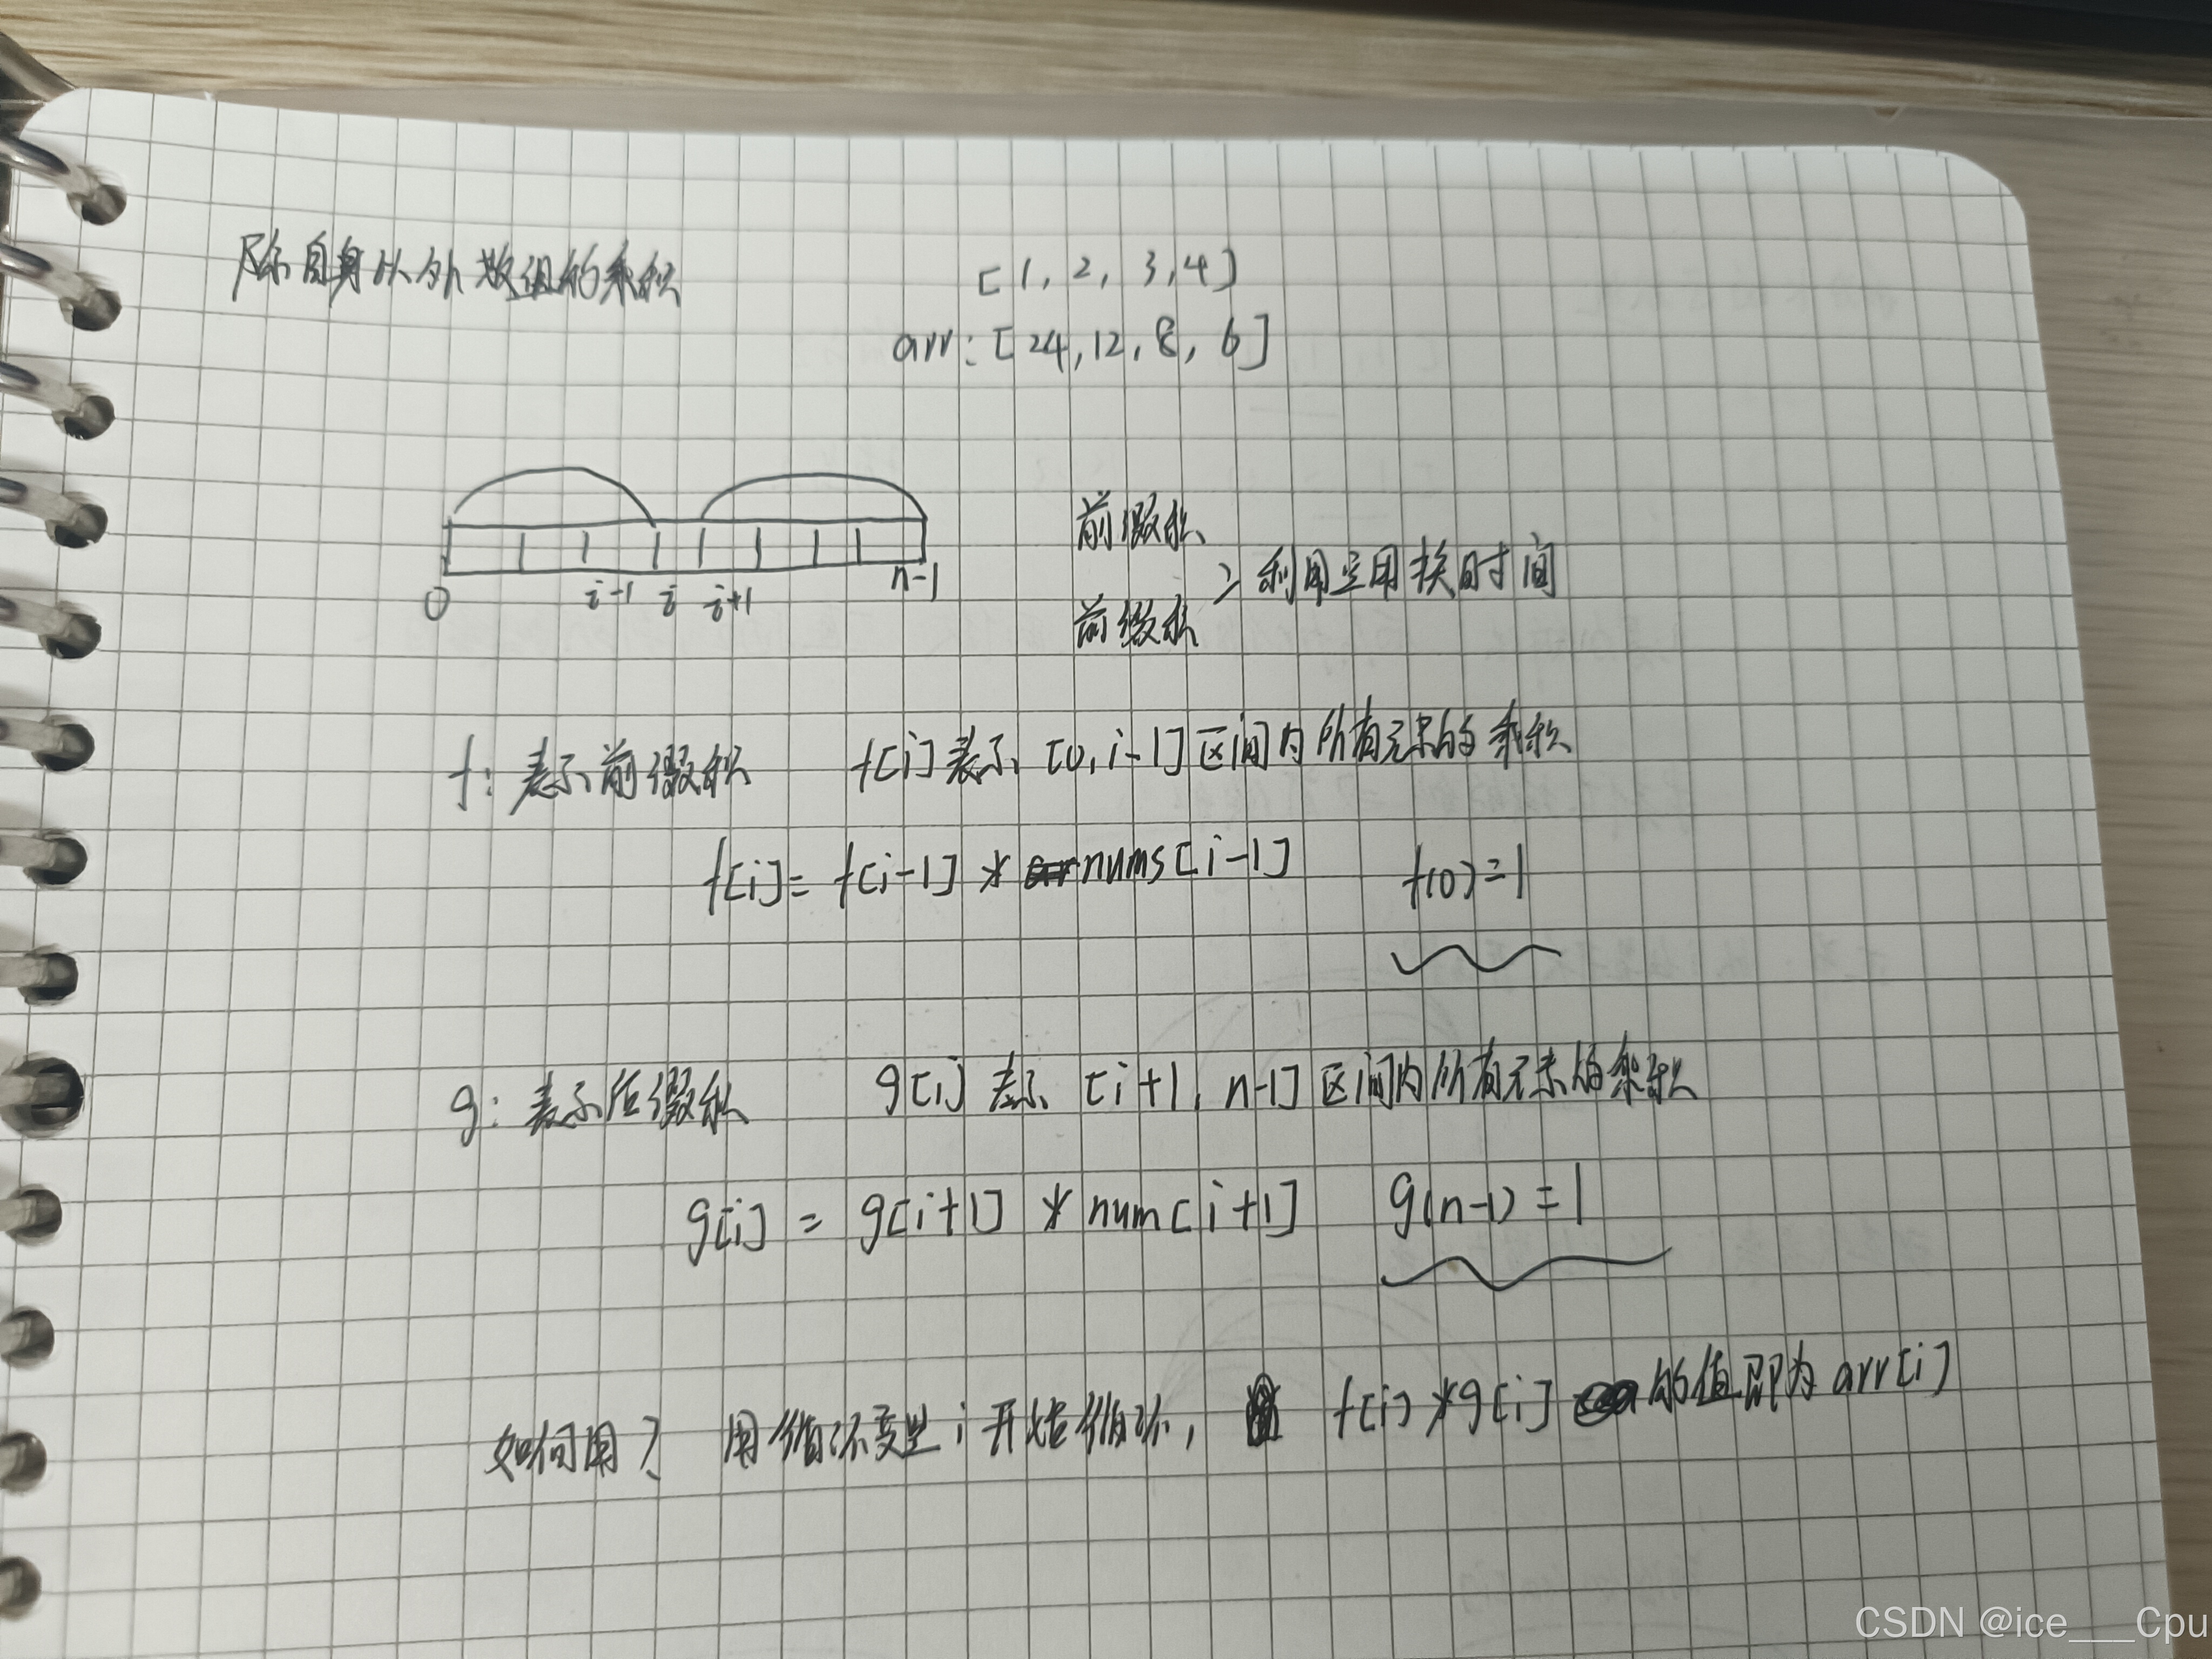 除自身以外数组的乘积
[1, 2, 3, 4]
arr: [24, 12, 8, 6]
0 i-1 i i+1 n-1
前缀积
前缀积
利用空用换时间
f: 表示前缀积 f[i]表示 [0, i-1]区间内所有元素的乘积
f[i] = f[i-1] * nums[i-1] f(0)=1
g: 表示后缀积 g[i] 表示 [i+1, n-1] 区间内所有元素的乘积
g[i] = g[i+1] * num[i+1] g(n-1) = 1
如何用? 用循环变量 i 开始循环, f[i] * g[i] 的值即为 arr[i]
CSDN @ice___Cpu